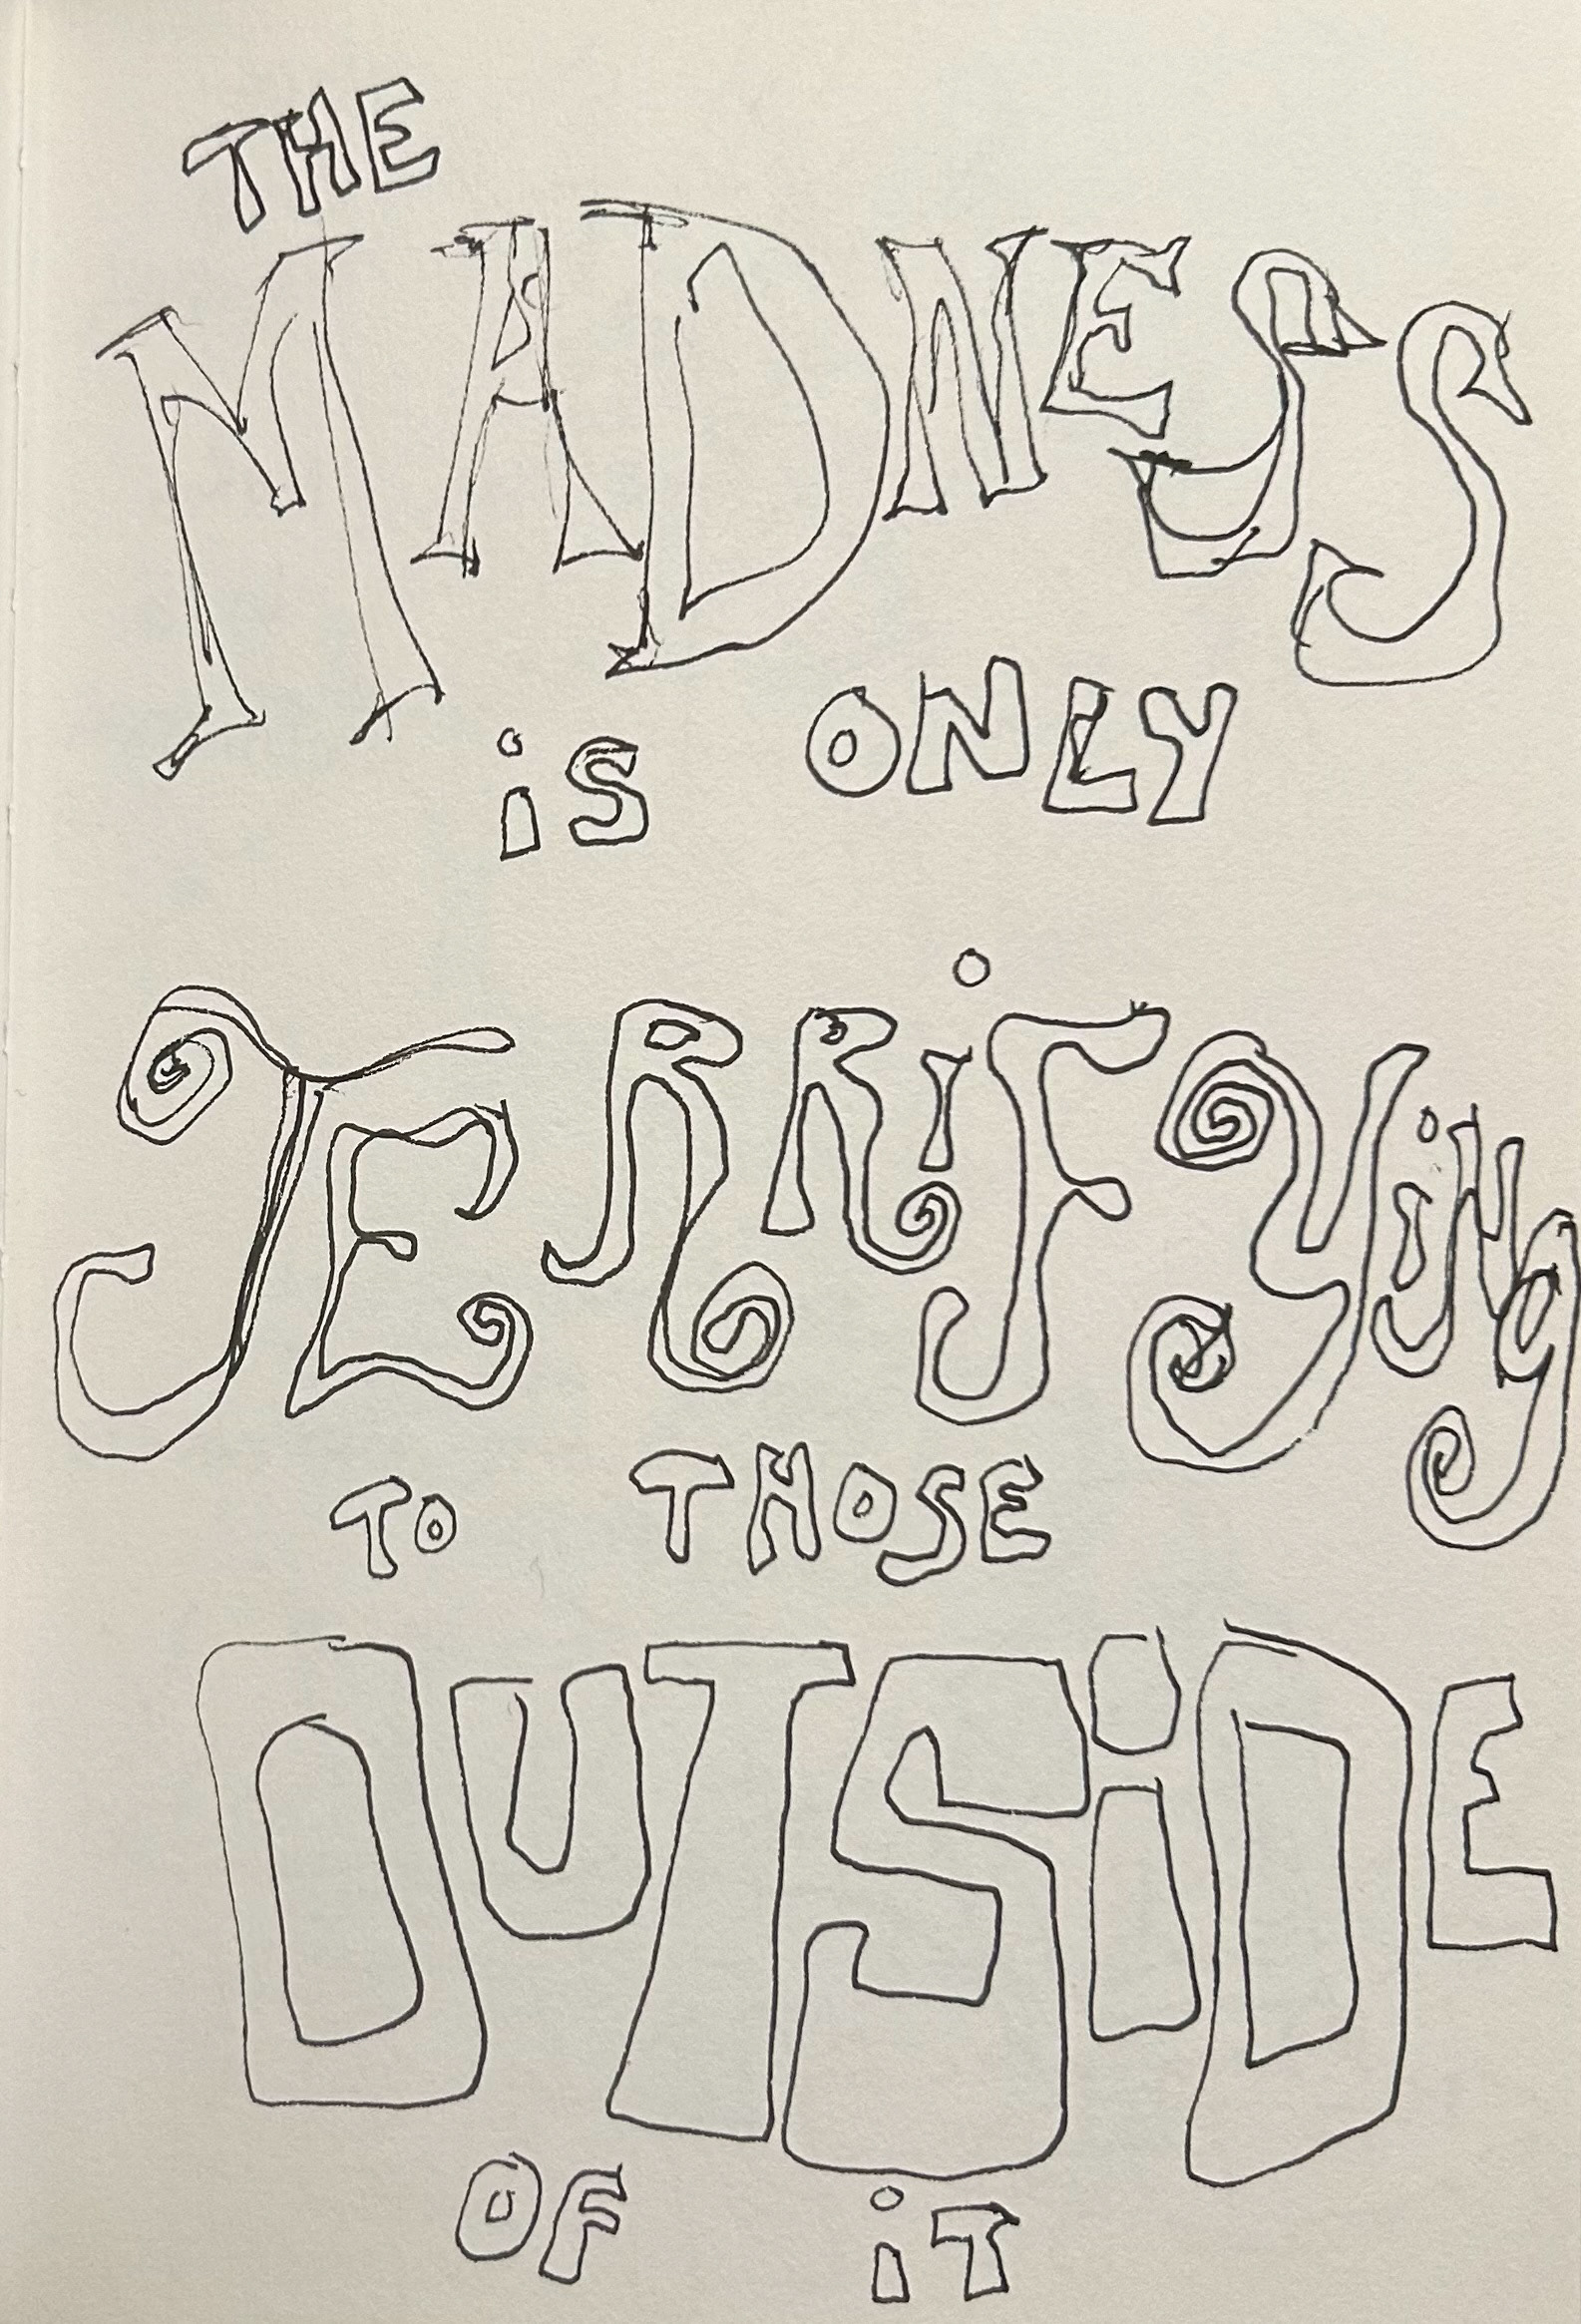 THE
MADNESS
iS ONLY
TERRiFYiNg
TO THOSE
OUTSiDE
OF iT